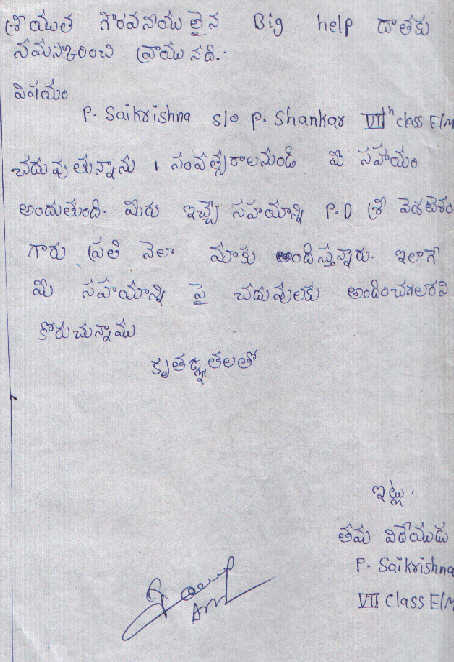 శ్రీయుత గౌరవనీయులైన Big help దాతకు
నమస్కరించి వ్రాయునది.
విషయం
P. Saikrishna s/o P. Shankar VIIth class E/M
చదువుతున్నాను 1 సంవత్సరాలనుండి మీ సహాయం
అందుతుంది. మీరు ఇచ్చే సహయాన్ని P.D శ్రీ వెంకటేశం
గారు ప్రతి నెలా మాకు అందిస్తున్నారు. ఇలాగే
మీ సహయాన్ని పై చదువులకు అందించగలరని
కోరుచున్నాము
కృతజ్ఞతలతో
ఇట్లు.
తమ విధేయుడు
P. Saikrishna
VII Class E/M